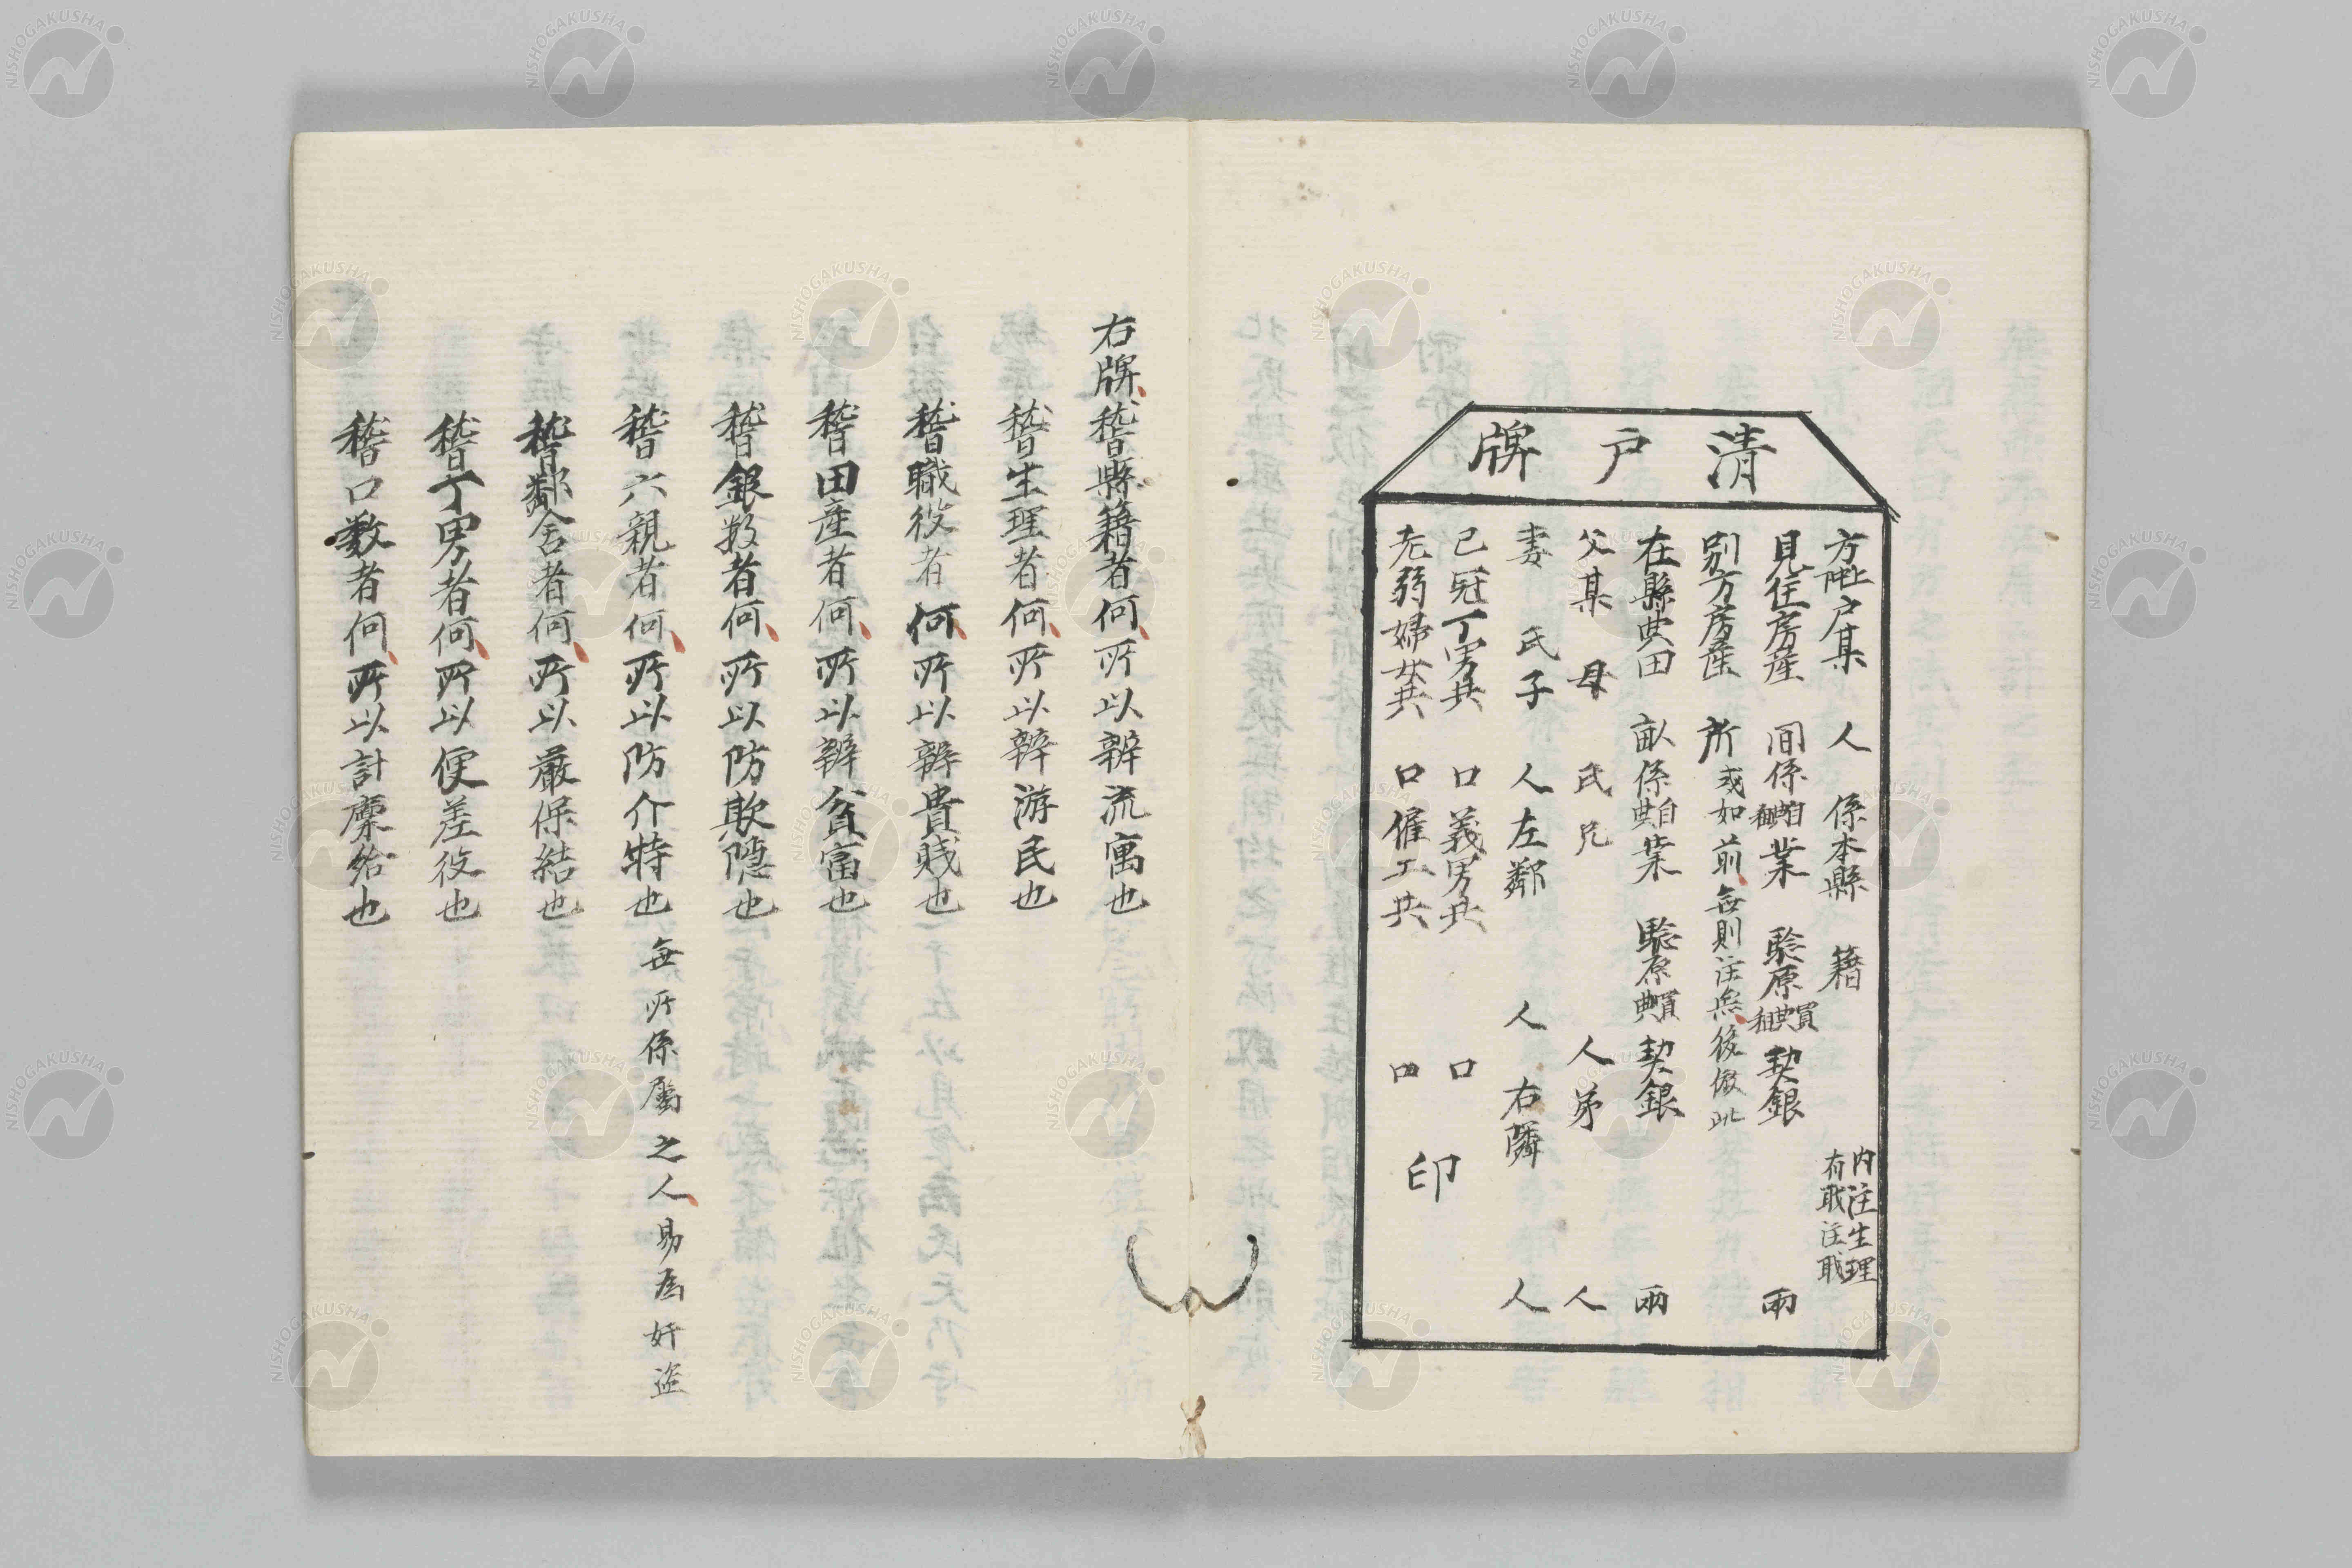 清戸牌
方 戸某 人 係本縣 籍 内注生理 有職注職
見住房産 間係 自典租 業 驗原 買典租 契銀 兩
別方房産 所 或如前、無則注無、後倣此
在縣典田 畝係 自典 業 驗原 買典 契銀 兩
父某 母 氏 兄 人弟 人
妻 氏子 人左鄰 人 右隣 人
已冠丁男共 口義男共 口
老弱婦女共 口僱工共 口
印
右牌、稽縣籍者何、所以辨流寓也
稽生理者何、所以辨游民也
稽職役者何、所以辨貴賤也
稽田産者何、所以辨貧富也
稽銀数者何、所以防欺隠也
稽六親者何、所以防介特也 毎所係屬之人、易為奸盗
稽鄰舎者何、所以嚴保結也
稽丁男者何、所以便差役也
稽口数者何、所以計廩給也
NISHOGAKUSHA